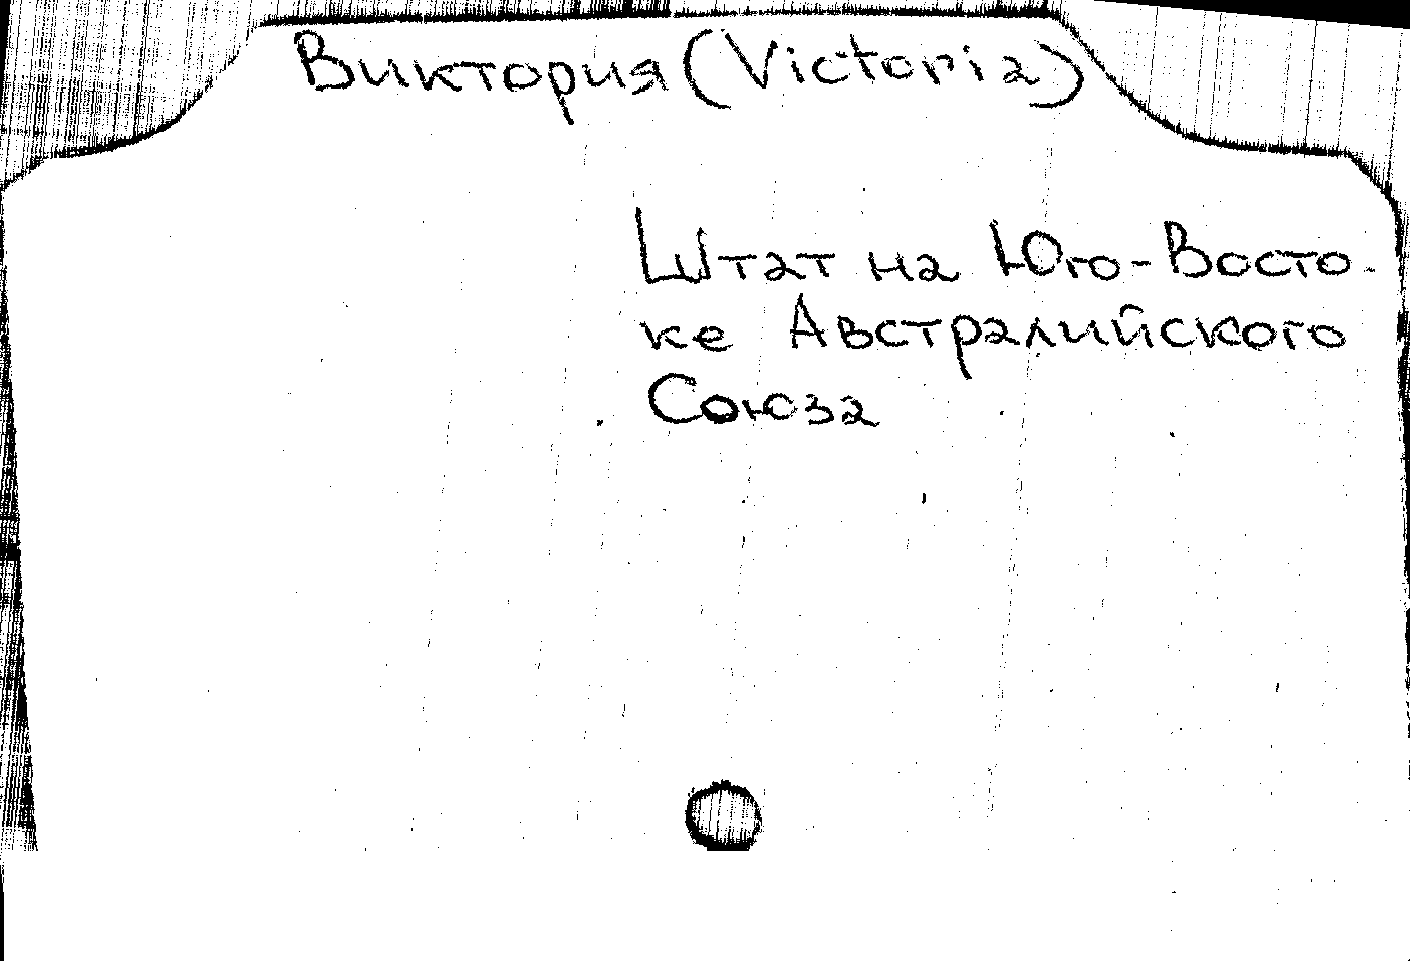 Виктория (Victoria)
Штат на Юго-Восто-
ке Австралийского
Союза